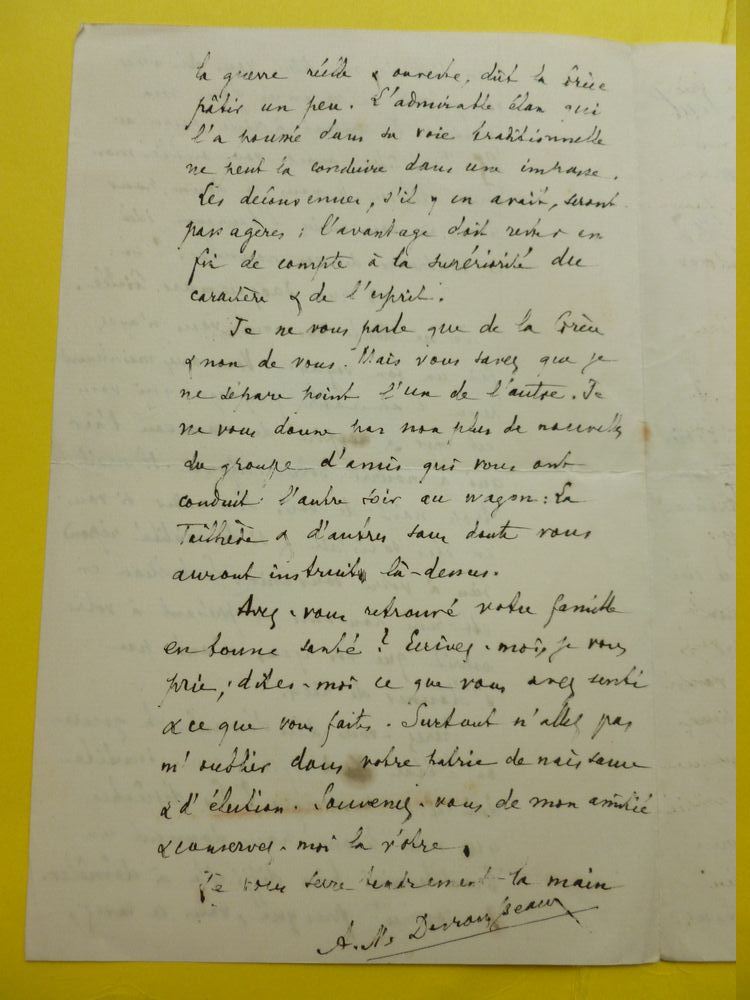 la guerre réelle & ouverte, dût la Grèce
pâtir un peu. L'admirable élan qui
l'a poussée dans sa voie traditionnelle
ne peut la conduire dans une impasse.
Les déconvenues, s'il y en avait, seront
passagères ; l'avantage doit rester en
fin de compte à la supériorité du
caractère & de l'esprit.
Je ne vous parle que de la Grèce
& non de vous. Mais vous savez que je
ne sépare point l'un de l'autre. Je
ne vous donne pas non plus de nouvelles
du groupe d'amis qui vous ont
conduit l'autre soir au wagon : La
Tailhède & d'autres sans doute vous
auront instruit là-dessus.
Avez-vous retrouvé votre famille
en bonne santé ? Ecrivez-moi, je vous
prie, dites-moi ce que vous avez senti
& ce que vous faites. Surtout n'allez pas
m'oublier dans votre patrie de naissance
& d'élection. Souvenez-vous de mon amitié
& conservez-moi la vôtre.
Je vous serre tendrement la main
A. M. Desrousseaux